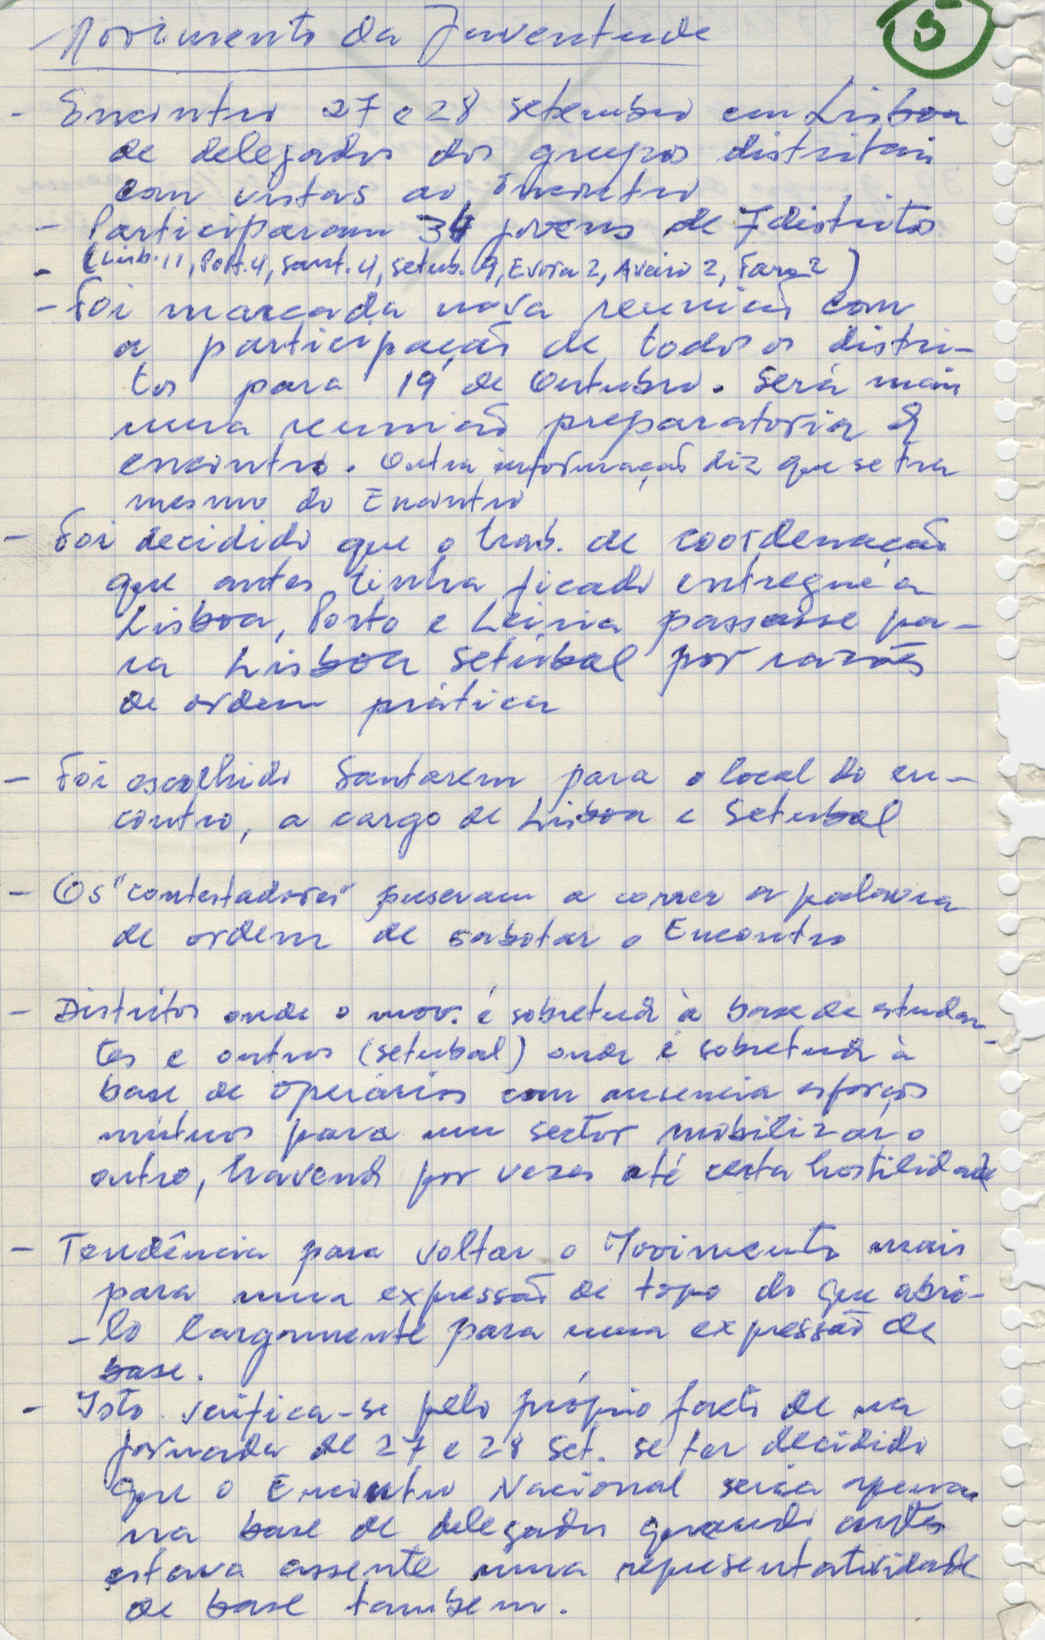 Movimento da Juventude
5
- Encontro 27 e 28 setembro em Lisboa
de delegados dos grupos distritais
com vistas ao Encontro
- Participaram 34 jovens de 7 distritos
- (Lisb. 11, Port. 4, Sant. 4, Setub. 9, Evora 2, Aveiro 2, Faro 2)
- Foi marcada nova reunião com
a participação de todos os distri-
tos para 19 de Outubro. Será mais
uma reunião preparatoria do
encontro. Outra informação diz que se trata
mesmo do Encontro
- Foi decidido que o trab. de coordenação
que antes tinha ficado entregue a
Lisboa, Porto e Leiria passasse pa-
ra Lisboa Setúbal por razões
de ordem prática
- Foi escolhido Santarem para o local do en-
contro, a cargo de Lisboa e Setubal
- Os "contestadores" puseram a correr a palavra
de ordem de sabotar o Encontro
- Distritos onde o mov. é sobretudo à base de estudan-
tes e outros (setubal) onde é sobretudo à
base de operários com ausencia esforços
mútuos para um sector mobilizar o
outro, havendo por vezes até certa hostilidade
- Tendência para voltar o Movimento mais
para uma expressão de topo do que abri-
-lo largamente para uma expressão de
base.
- Isto verifica-se pelo próprio facto de na
jornada de 27 e 28 Set. se ter decidido
que o Encontro Nacional seria apenas
na base de delegados quando antes
estava assente uma representatividade
de base tambem.